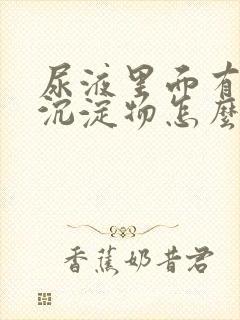 尿液里面有
沉淀物怎麽
香蕉奶昔君